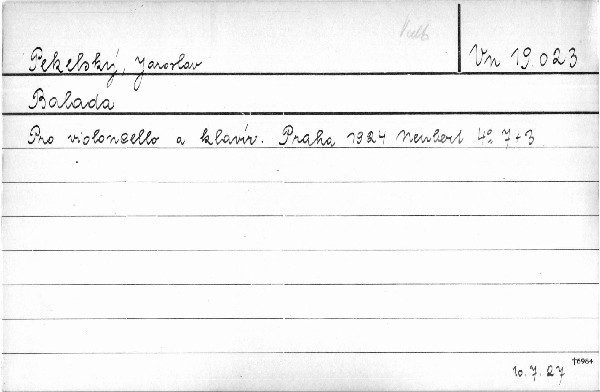 Pekelský, Jaroslav
Vn 19.023
Balada
Pro violoncello a klavír. Praha 1924 Neubert 4° 7+3
16.7.27